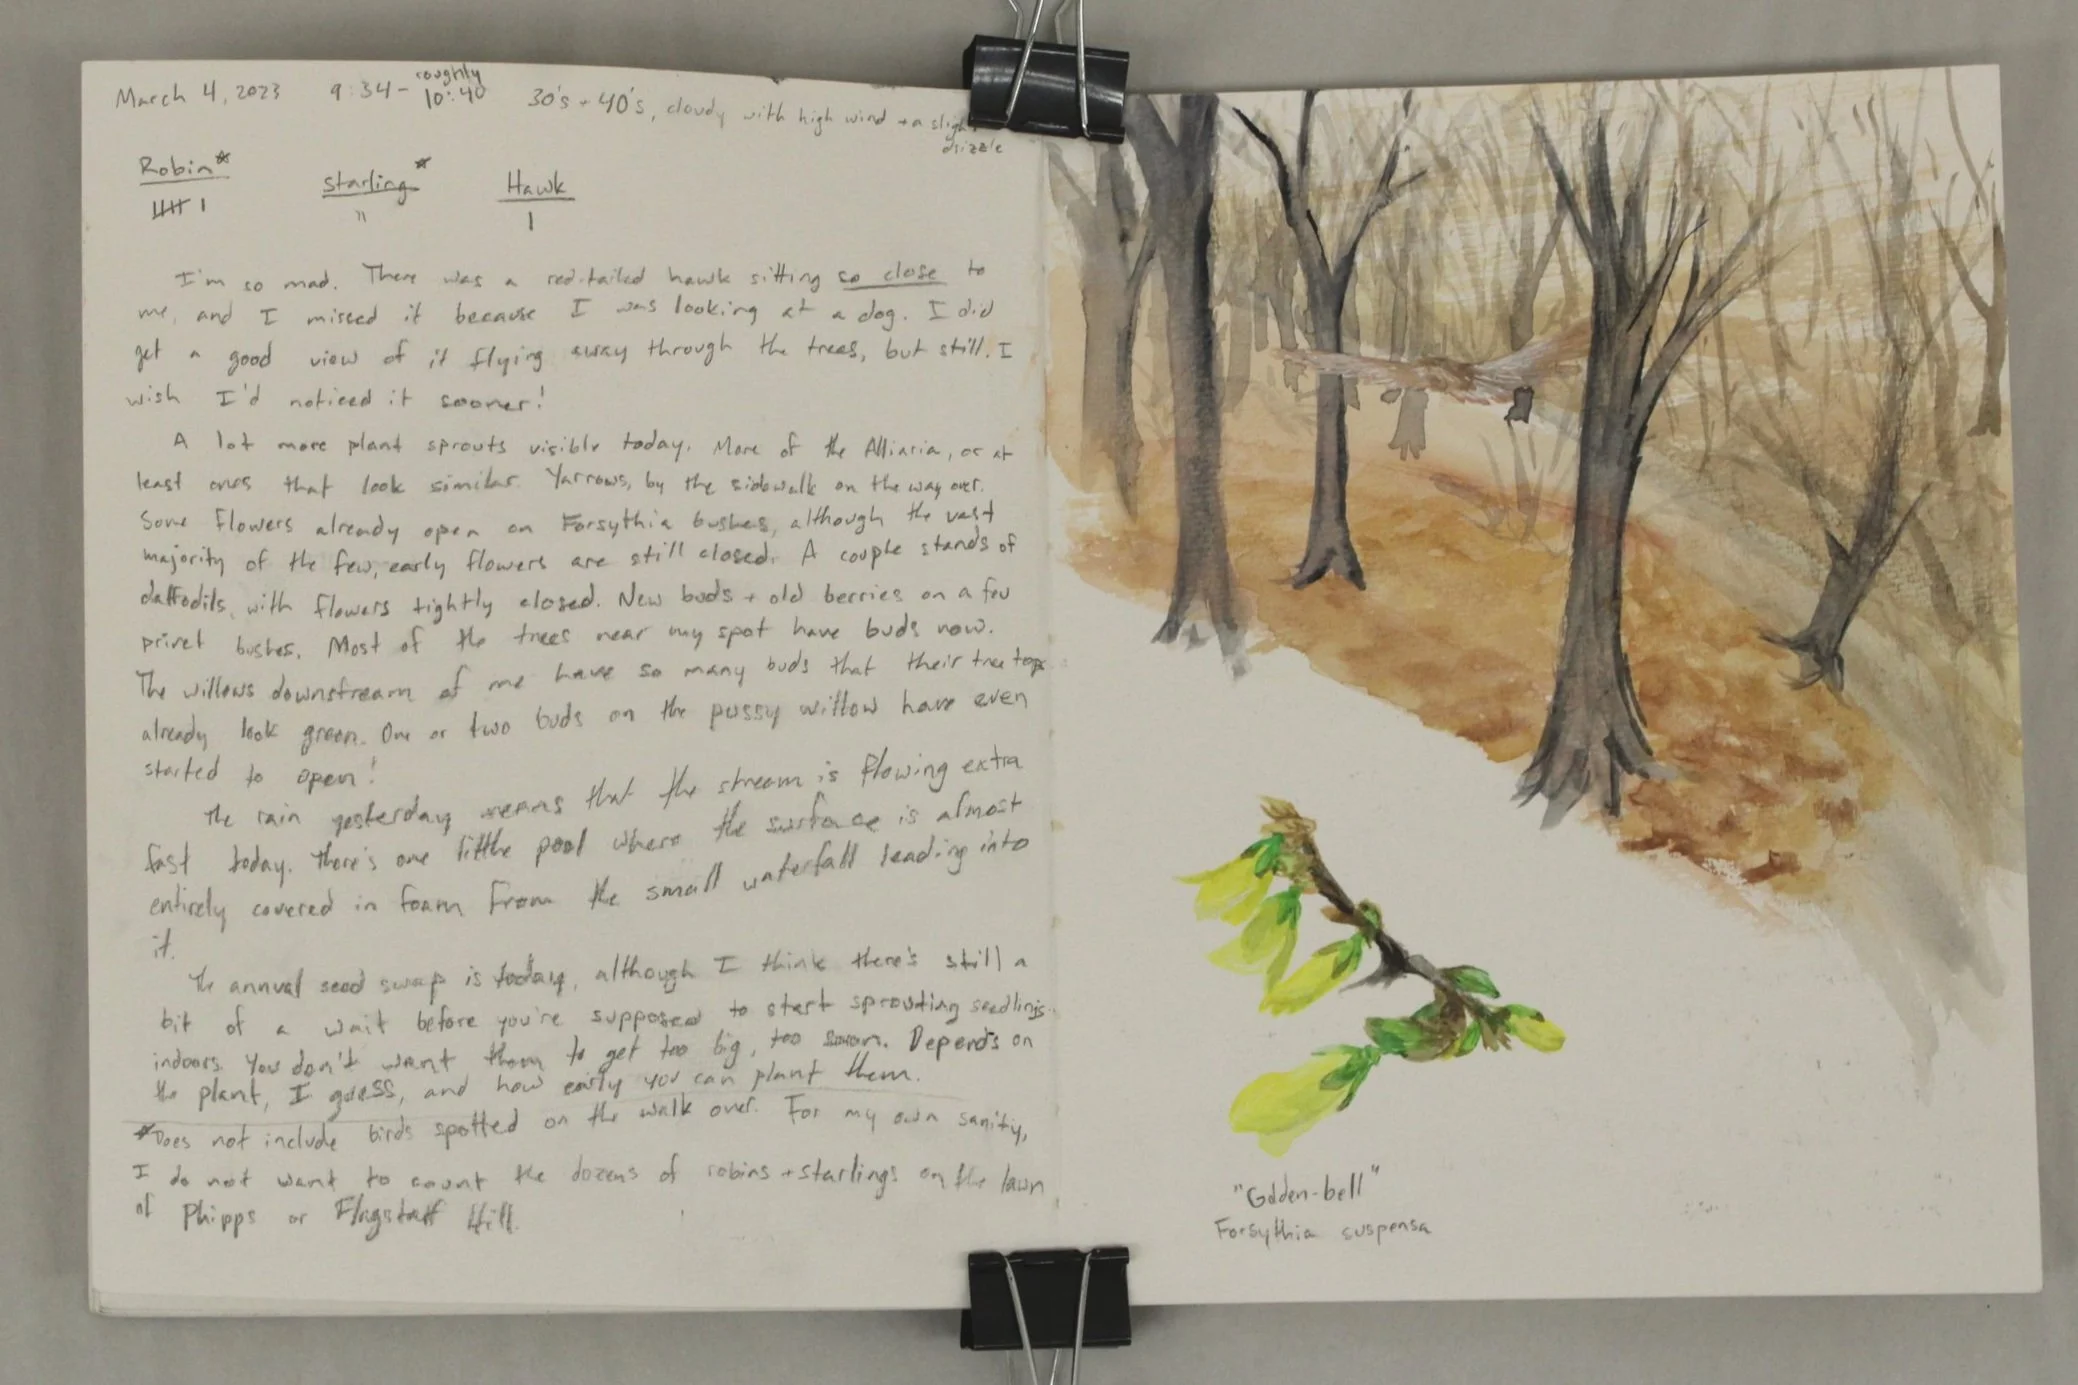 March 4, 2023 9:34 - roughly 10:40 30's + 40's, cloudy with high wind + a slight drizzle
Robin* starling* Hawk
|||| | " |
I'm so mad. There was a red-tailed hawk sitting so close to
me, and I missed it because I was looking at a dog. I did
get a good view of it flying away through the trees, but still. I
wish I'd noticed it sooner!
A lot more plant sprouts visible today. More of the Alliaria, or at
least ones that look similar. Yarrows, by the sidewalk on the way over.
Some flowers already open on Forsythia bushes, although the vast
majority of the few, early flowers are still closed. A couple stands of
daffodils, with flowers tightly closed. New buds + old berries on a few
privet bushes. Most of the trees near my spot have buds now.
The willows downstream of me have so many buds that their tree tops
already look green. One or two buds on the pussy willow have even
started to open!
The rain yesterday means that the stream is flowing extra
fast today. There's one little pool where the surface is almost
entirely covered in foam from the small waterfall leading into
it.
The annual seed swap is today, although I think there's still a
bit of a wait before you're supposed to start sprouting seedlings
indoors. You don't want them to get too big, too soon. Depends on
the plant, I guess, and how early you can plant them.
*Does not include birds spotted on the walk over. For my own sanity,
I do not want to count the dozens of robins + starlings on the lawn
of Phipps or Flagstaff Hill.
"Golden-bell"
Forsythia suspensa